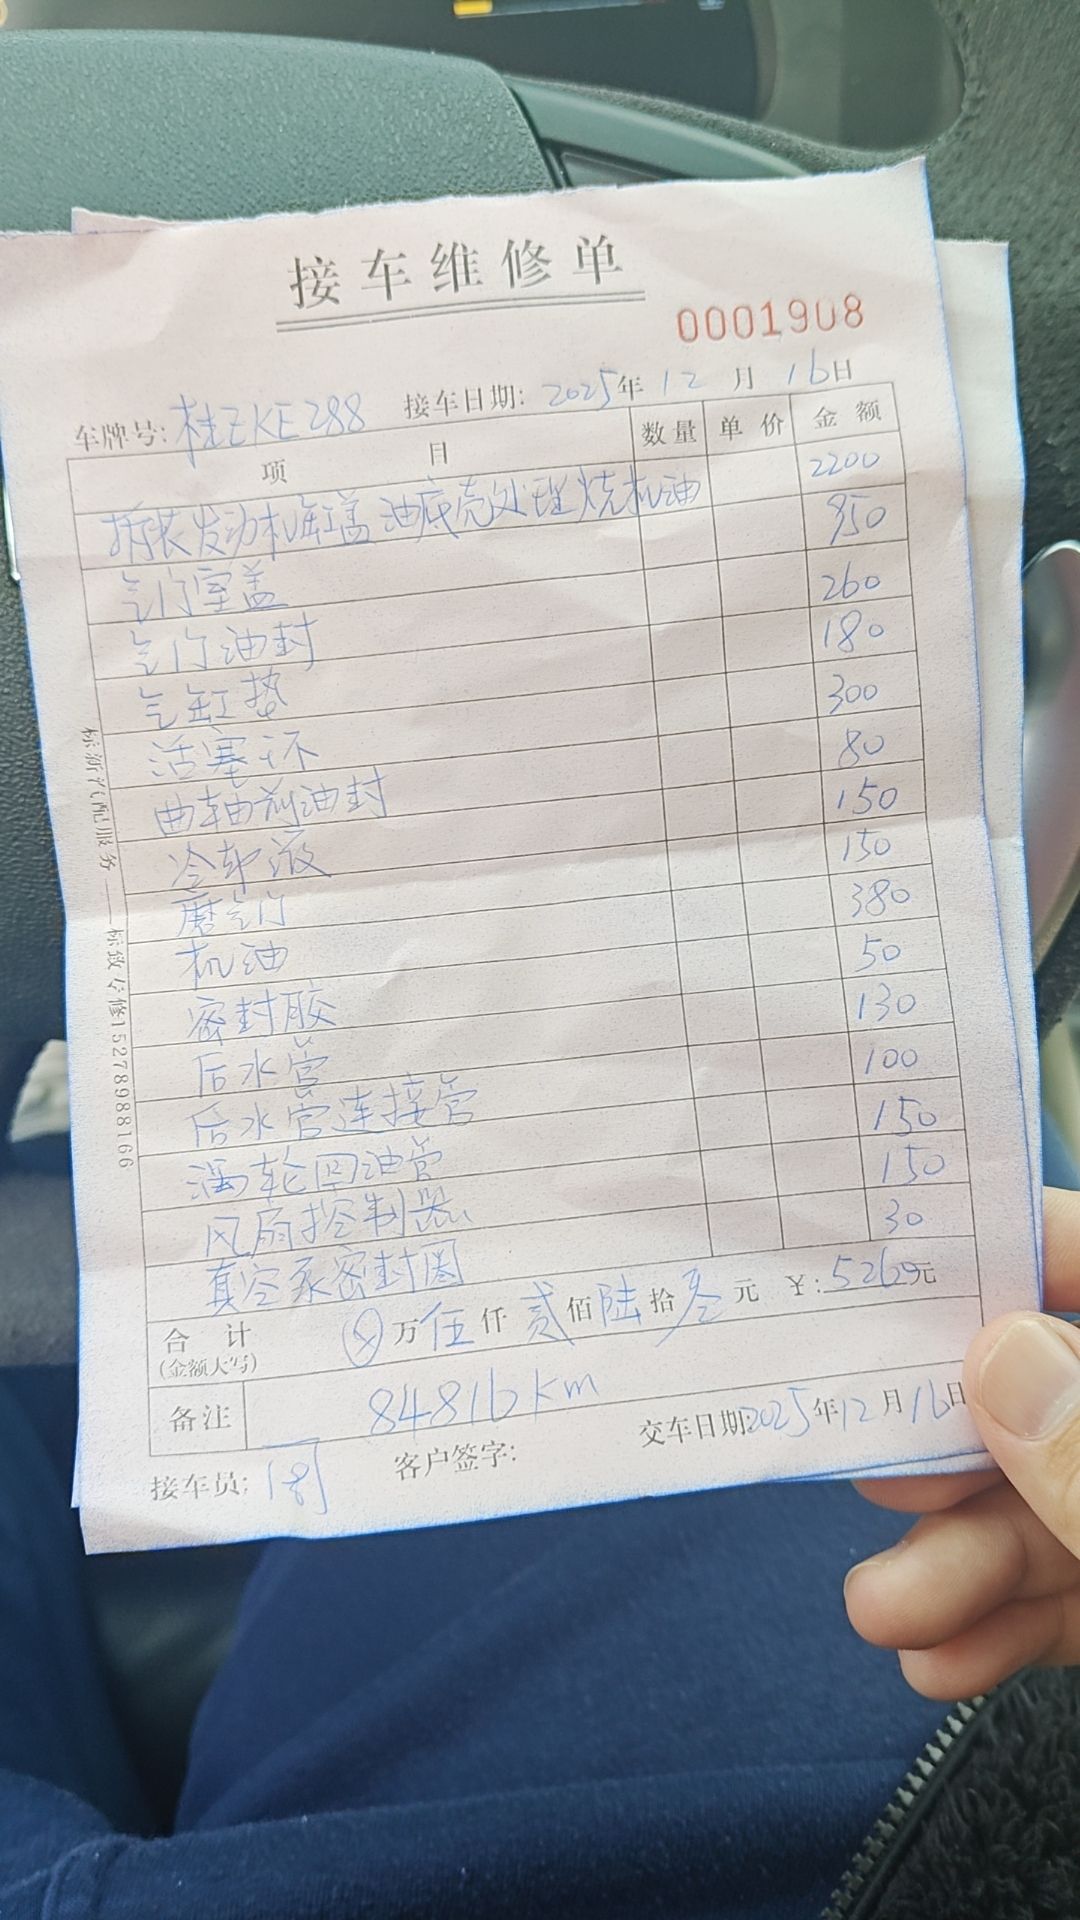 接车维修单
0001908
车牌号: 桂EKE288 接车日期: 2025年12月16日
项目 数量 单价 金额
拆装发动机缸盖油底壳处理烧机油 2200
气门室盖 950
气门油封 260
气缸垫 180
活塞环 300
曲轴前油封 80
冷却液 150
磨气门 150
机油 380
密封胶 50
后水管 130
后水管连接管 100
涡轮回油管 150
风扇控制器 150
真空泵密封圈 30
合计 万伍仟贰佰陆拾元 ¥: 元
(金额大写)
备注 84816km
接车员: 周 客户签字: 交车日期2025年12月16日
15278988166